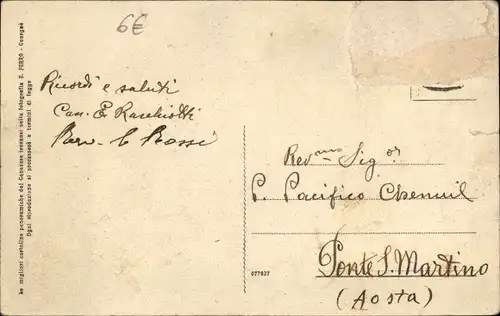 6€
Ricordi e saluti
Can. E.
Rossi
Rev.mo Sig.or
P. Pacifico Chenuil
Ponte S. Martino
(Aosta)
077937
Le migliori cartoline panoramiche del Canavese trovansi nella fotografia E. FERRO - Cuorgnè
Ogni riproduzione si procederà a termini di legge